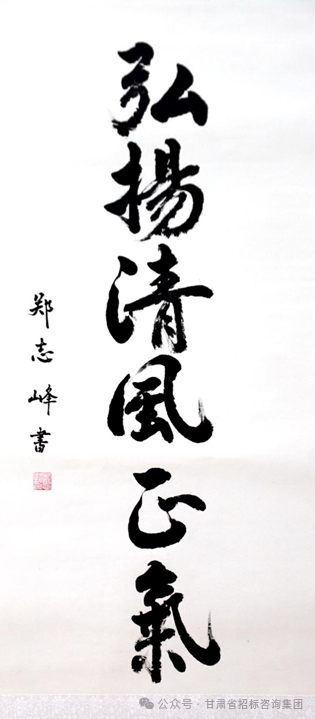 弘揚清風正氣
郑志峰書
公众号 · 甘肃省招标咨询集团